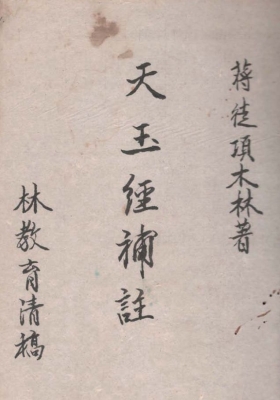 蔣徒項木林著
天玉經補註
林教育清稿